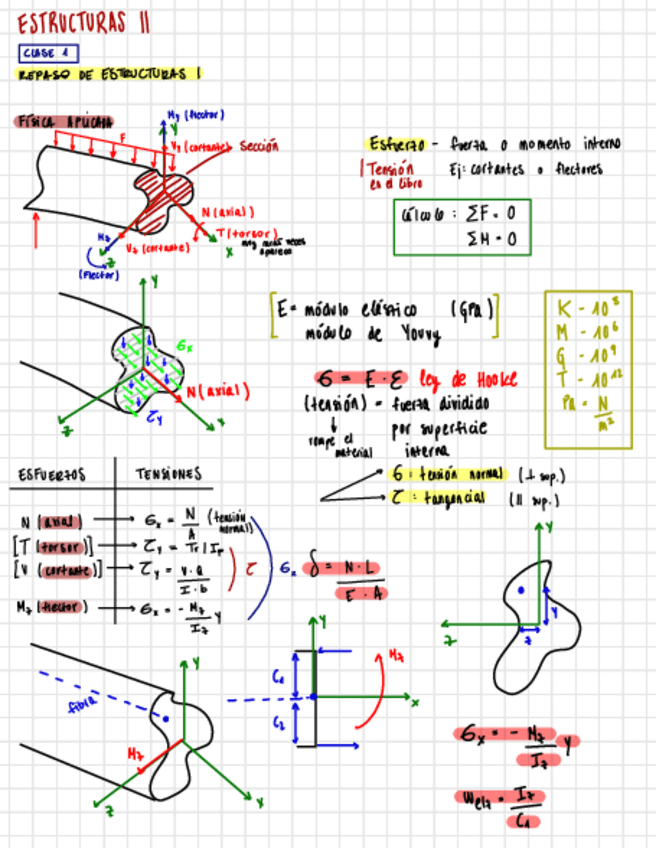 ESTRUCTURAS II
CLASE 1
REPASO DE ESTRUCTURAS I
FÍSICA APLICADA
My (flector)
Y
F
Vy (cortante)
Sección
N (axial)
T (torsor)
muy raras veces aparece
X
Vz (cortante)
Mz
Z
(flector)
Esfuerzo - fuerza o momento interno
Tensión en el libro
Ej: cortantes o flectores
Cálculo: ΣF = 0
ΣM = 0
Y
σx
N (axial)
τy
Z
X
E = módulo elástico (GPa)
módulo de Young
σ = E · ε ley de Hooke
(tensión) = fuerza dividido
por superficie
interna
rompe el
material
K - 10³
M - 10⁶
G - 10⁹
T - 10¹²
Pa = N/m²
σ: tensión normal (⊥ sup.)
τ: tangencial (|| sup.)
ESFUERZOS TENSIONES
N (axial) → σx = N/A (tensión normal)
[T (torsor)] → τy = Tr / Ip
[V (cortante)] → τy = V·Q / I·b
Mz (flector) → σx = - Mz/Iz y
τ
σx
δ = N·L / E·A
Y
y
z
Z
fibra
Y
Mz
Z
X
Y
C1
C2
Mz
X
σx = - Mz/Iz y
Welz = Iz/C1